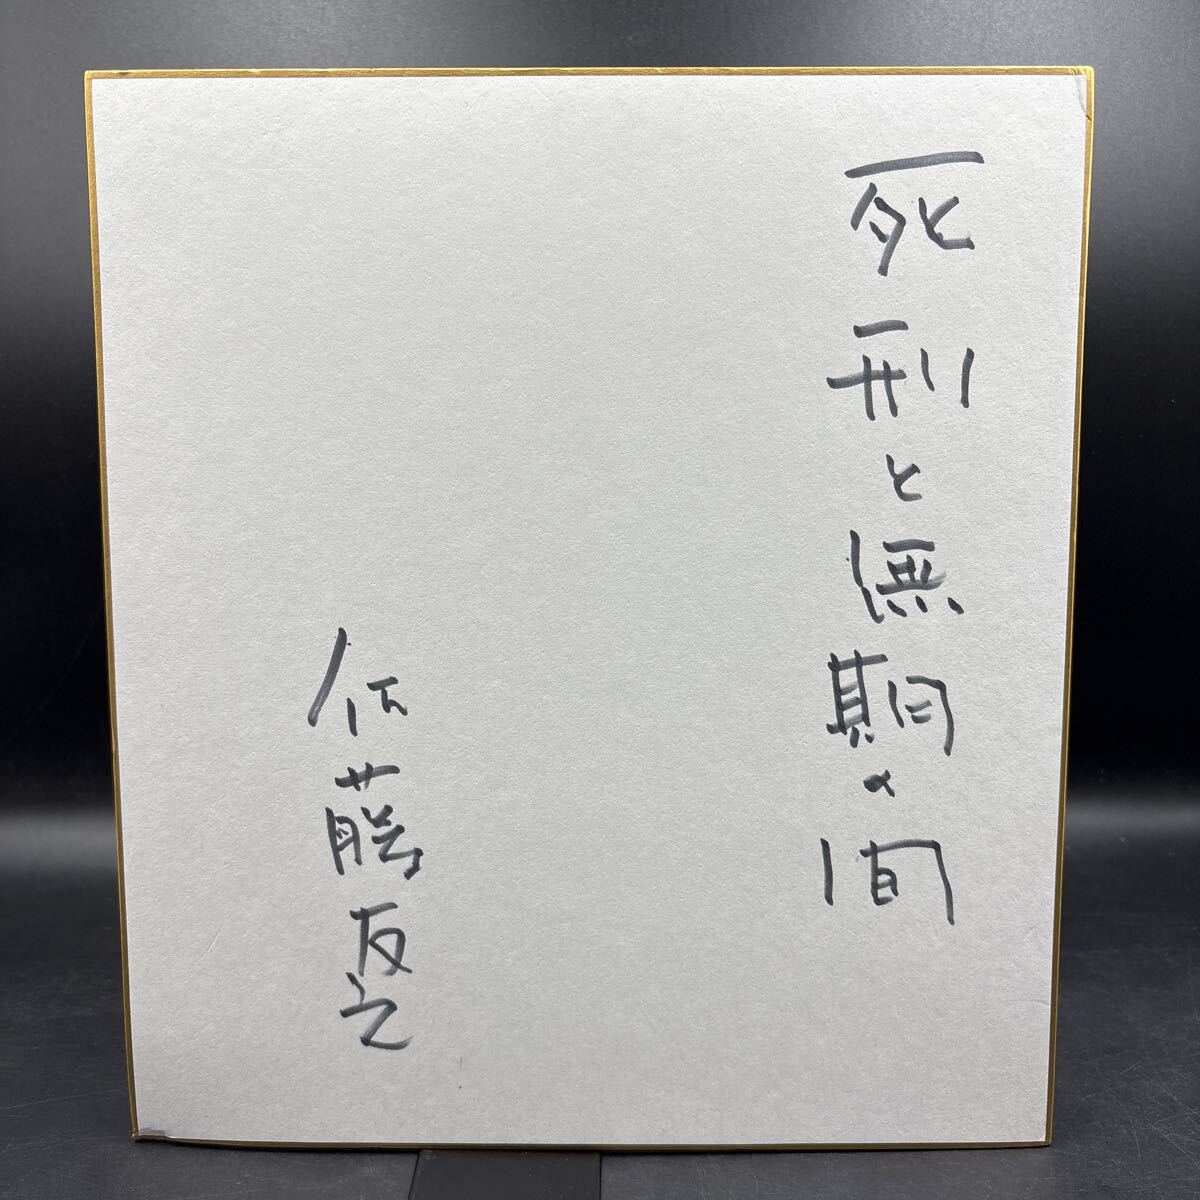 死刑と無期の間
佐藤友之